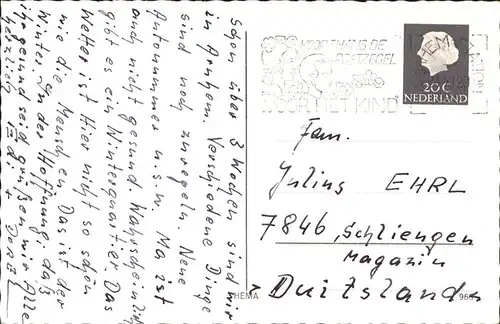 Schon über 3 Wochen sind wir
in Arnhem. Verschiedene Dinge
sind noch zu regeln. Neue
Autonummer u.s.w. Ma ist
auch nicht gesund. Wahrscheinlich
gibt es ein Winterquartier. Das
Wetter ist Hier nicht so schön
wie die Menschen. Das ist der
Winter. In der Hoffnung, daß
ihr gesund seid grüßen wir Alle
herzlich
VOOR
POSTZEGEL
VOOR HET KIND
20 C
NEDERLAND
Fam.
Julius EHRL
7846, Schliengen
Magazin
Duitsland
HEMA